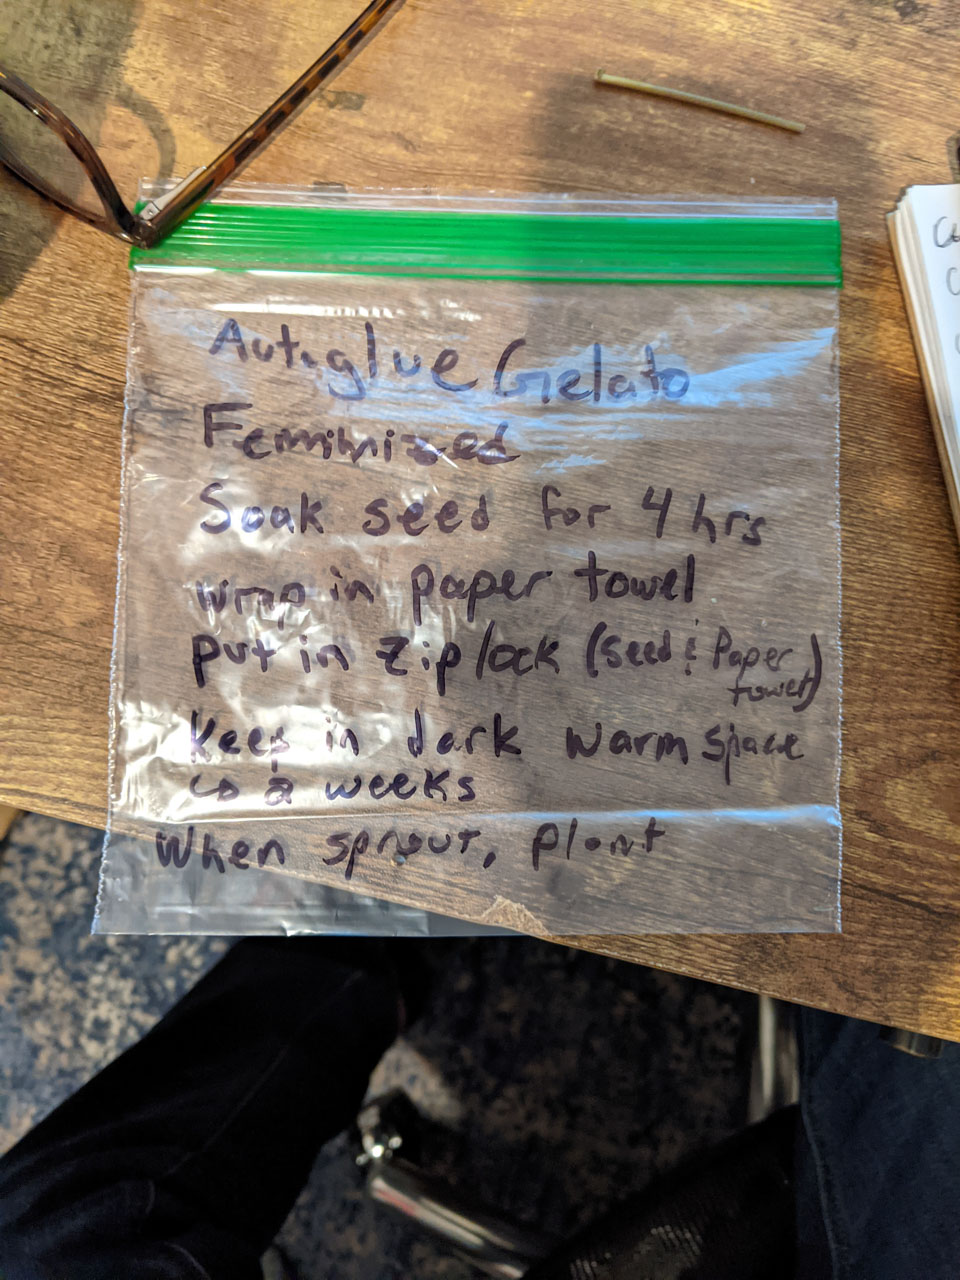 Autoglue Gelato
Feminized
Soak seed for 4 hrs
wrap in paper towel
put in ziplock (seed & Paper towel)
Keep in dark warm space
↳ 2 weeks
When sprout, plant